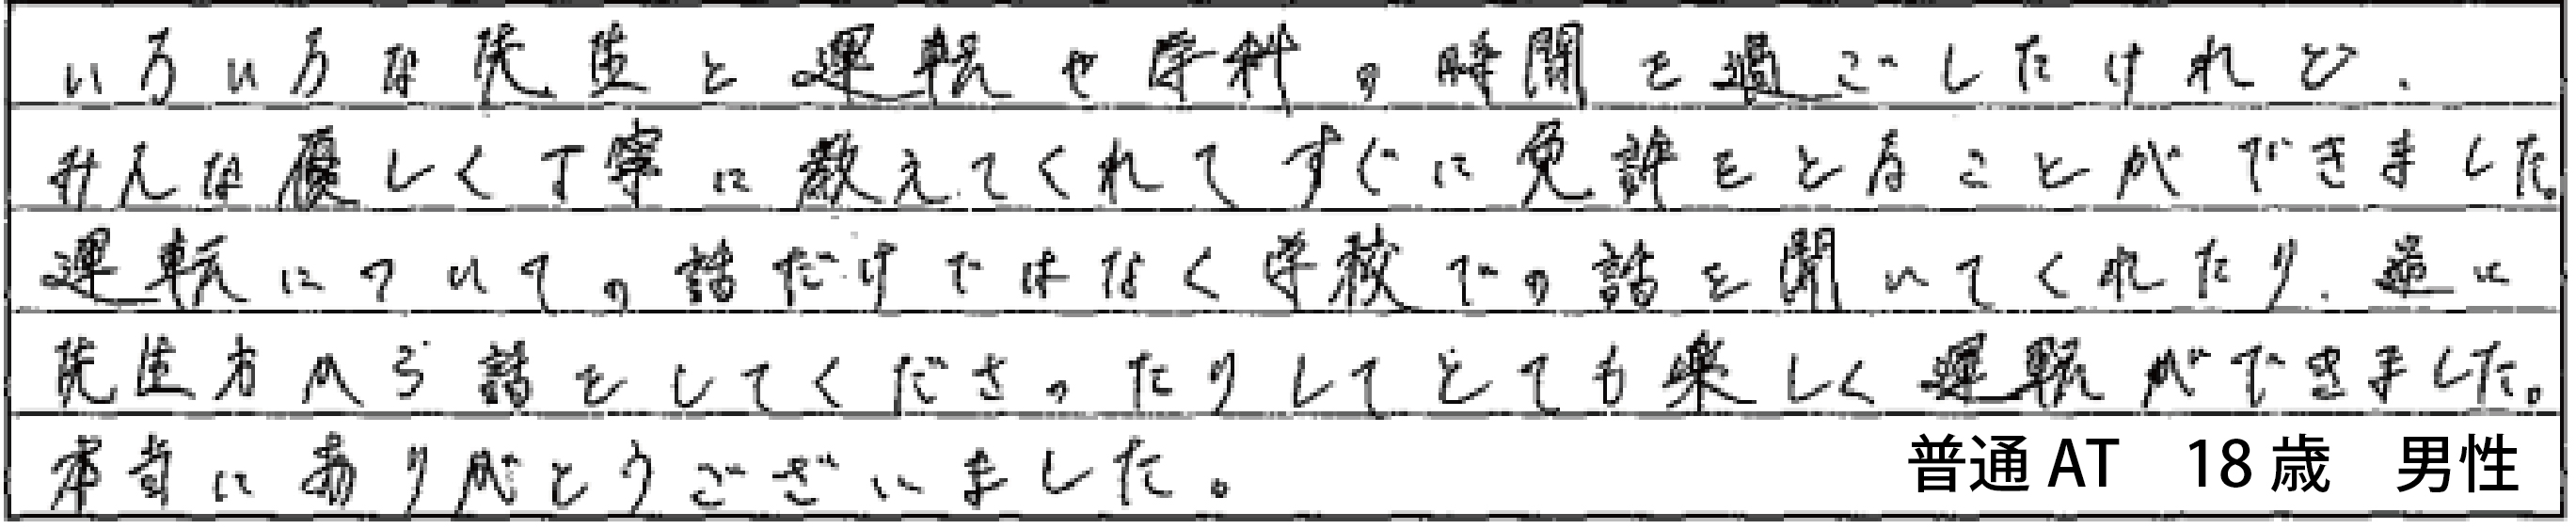 いろいろな先生と運転や学科の時間を過ごしたけれど、
みんな優しく丁寧に教えてくれてすぐに免許をとることができました。
運転についての話だけではなく学校での話を聞いてくれたり、逆に
先生方から話をしてくださったりしてとても楽しく運転ができました。
本当にありがとうございました。
普通AT 18歳 男性